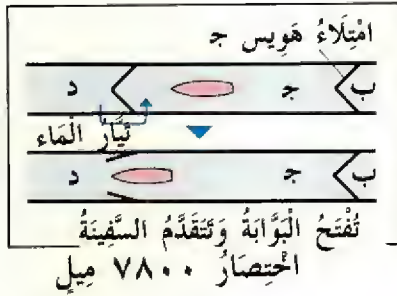 امْتِلَاءُ هَوِيس ج
ب ج د
تَيَّار الْمَاء
ب ج د
تُفْتَحُ الْبَوَّابَةُ وَتَتَقَدَّمُ السَّفِينَةُ
اخْتِصَارُ ٧٨٠٠ مِيلٍ